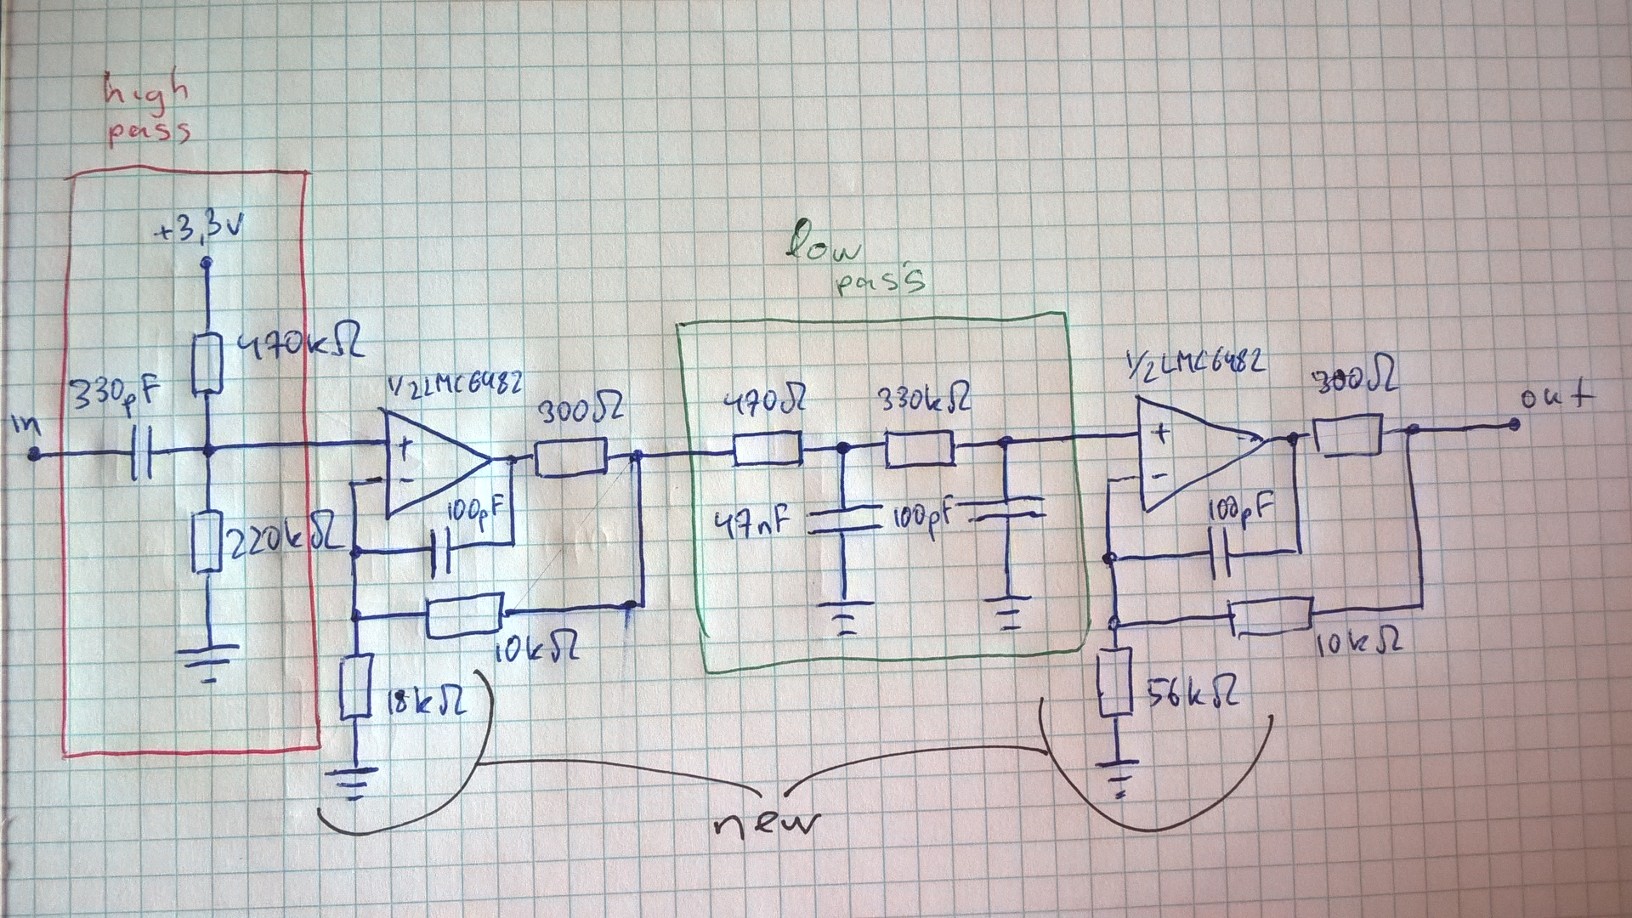 high
pass
+3,3V
470kΩ
330pF
in
220kΩ
1/2LMC6482
+
-
300Ω
100pF
10kΩ
18kΩ
low
pass
470Ω
330kΩ
47nF
100pF
1/2LMC6482
+
-
300Ω
out
100pF
10kΩ
56kΩ
new